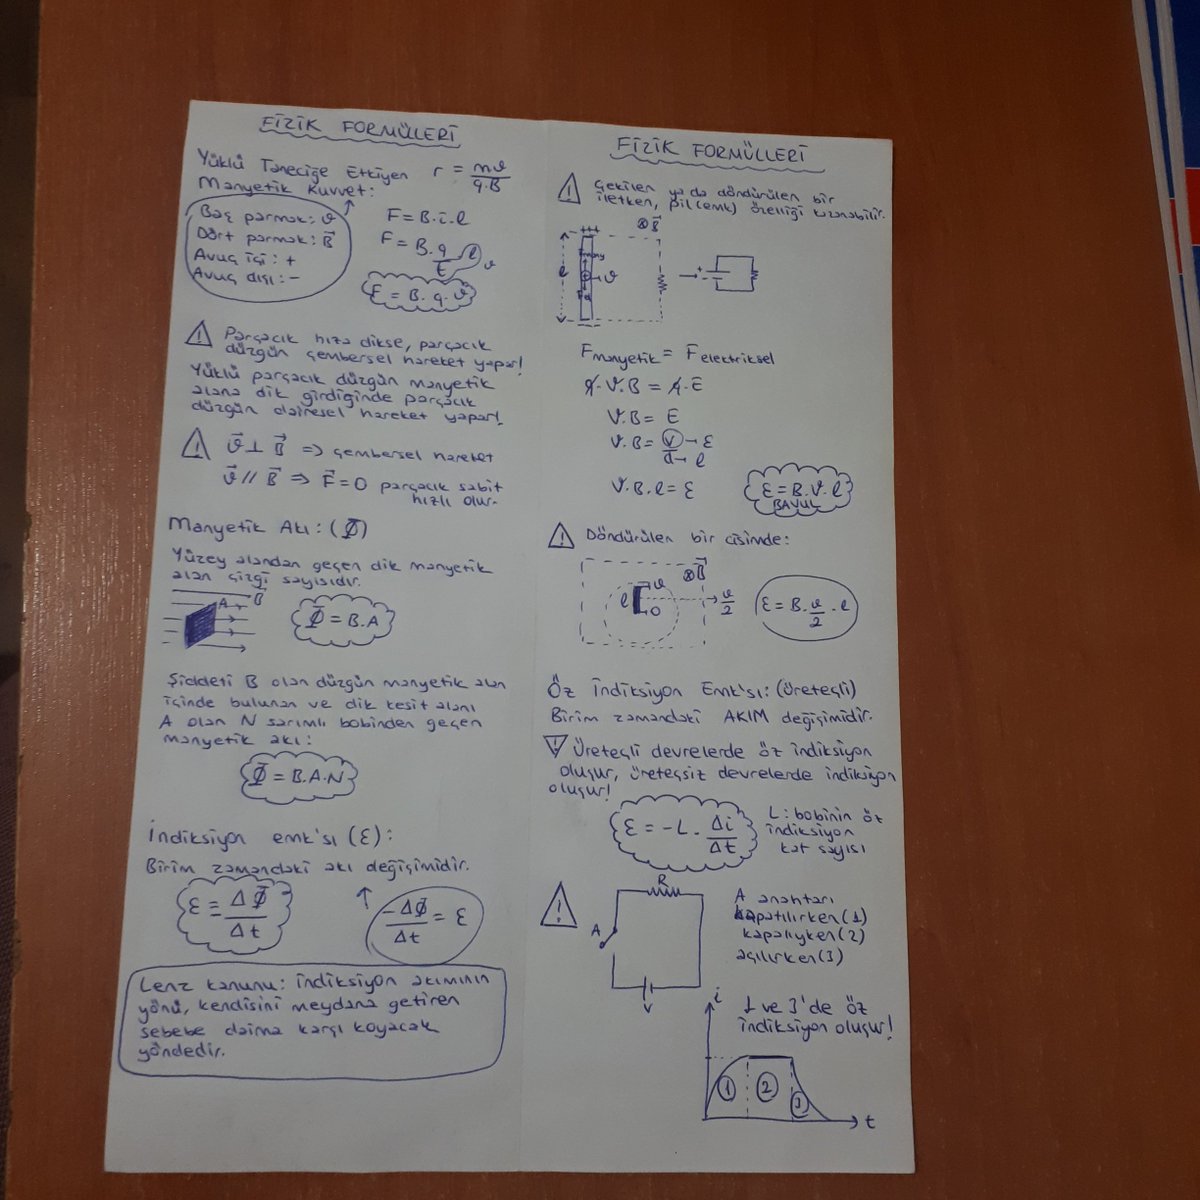 FİZİK FORMÜLERİ
Yüklü Taneciğe Etkiyen r = mϑ/q.B
Manyetik Kuvvet:
Baş parmak: ϑ
Dört parmak: B⃗
Avuç içi: +
Avuç dışı: -
F = B.i.l
F = B.q/t l ϑ
F = B.q.ϑ
⚠ Parçacık hıza dikse, parçacık
düzgün çembersel hareket yapar!
Yüklü parçacık düzgün manyetik
alana dik girdiğinde parçacık
düzgün dairesel hareket yapar!
⚠ ϑ⃗ ⊥ B⃗ => çembersel hareket
ϑ⃗ // B⃗ => F⃗ = 0 parçacık sabit
hızlı olur.
Manyetik Akı: (Φ)
Yüzey alandan geçen dik manyetik
alan çizgi sayısıdır.
A B⃗
Φ = B.A
Şiddeti B olan düzgün manyetik alan
içinde bulunan ve dik kesit alanı
A olan N sarımlı bobinden geçen
manyetik akı:
Φ = B.A.N
İndiksiyon emk'sı (ε):
Birim zamandaki akı değişimidir.
ε = ΔΦ/Δt
-ΔΦ/Δt = ε
Lenz kanunu: indiksiyon akımının
yönü, kendisini meydana getiren
sebebe daima karşı koyacak
yöndedir.
FİZİK FORMÜLLERİ
⚠ Çekilen ya da döndürülen bir
iletken, pil(emk) özelliği kazanabilir.
⊗B⃗
+++
l
ϑ
Fmanyetik = Felektriksel
q.ϑ.B = q.E
ϑ.B = E
ϑ.B = V/d → ε
→ l
ϑ.B.l = ε
ε = B.ϑ.l
BAVUL
⚠ Döndürülen bir cisimde:
⊗B⃗
l ϑ
O
ϑ/2
ε = B.ϑ/2.l
Öz İndiksiyon Emk'sı: (Üreteçli)
Birim zamandaki AKIM değişimidir.
Üreteçli devrelerde öz indiksiyon
oluşur, üreteçsiz devrelerde indiksiyon
oluşur!
ε = -L.Δi/Δt
L: bobinin öz
indiksiyon
kat sayısı
⚠
R
A
V
A anahtarı
kapatılırken(1)
kapalıyken(2)
açılırken(3)
1 ve 3'de öz
indiksiyon oluşur!
i
1 2 3
t